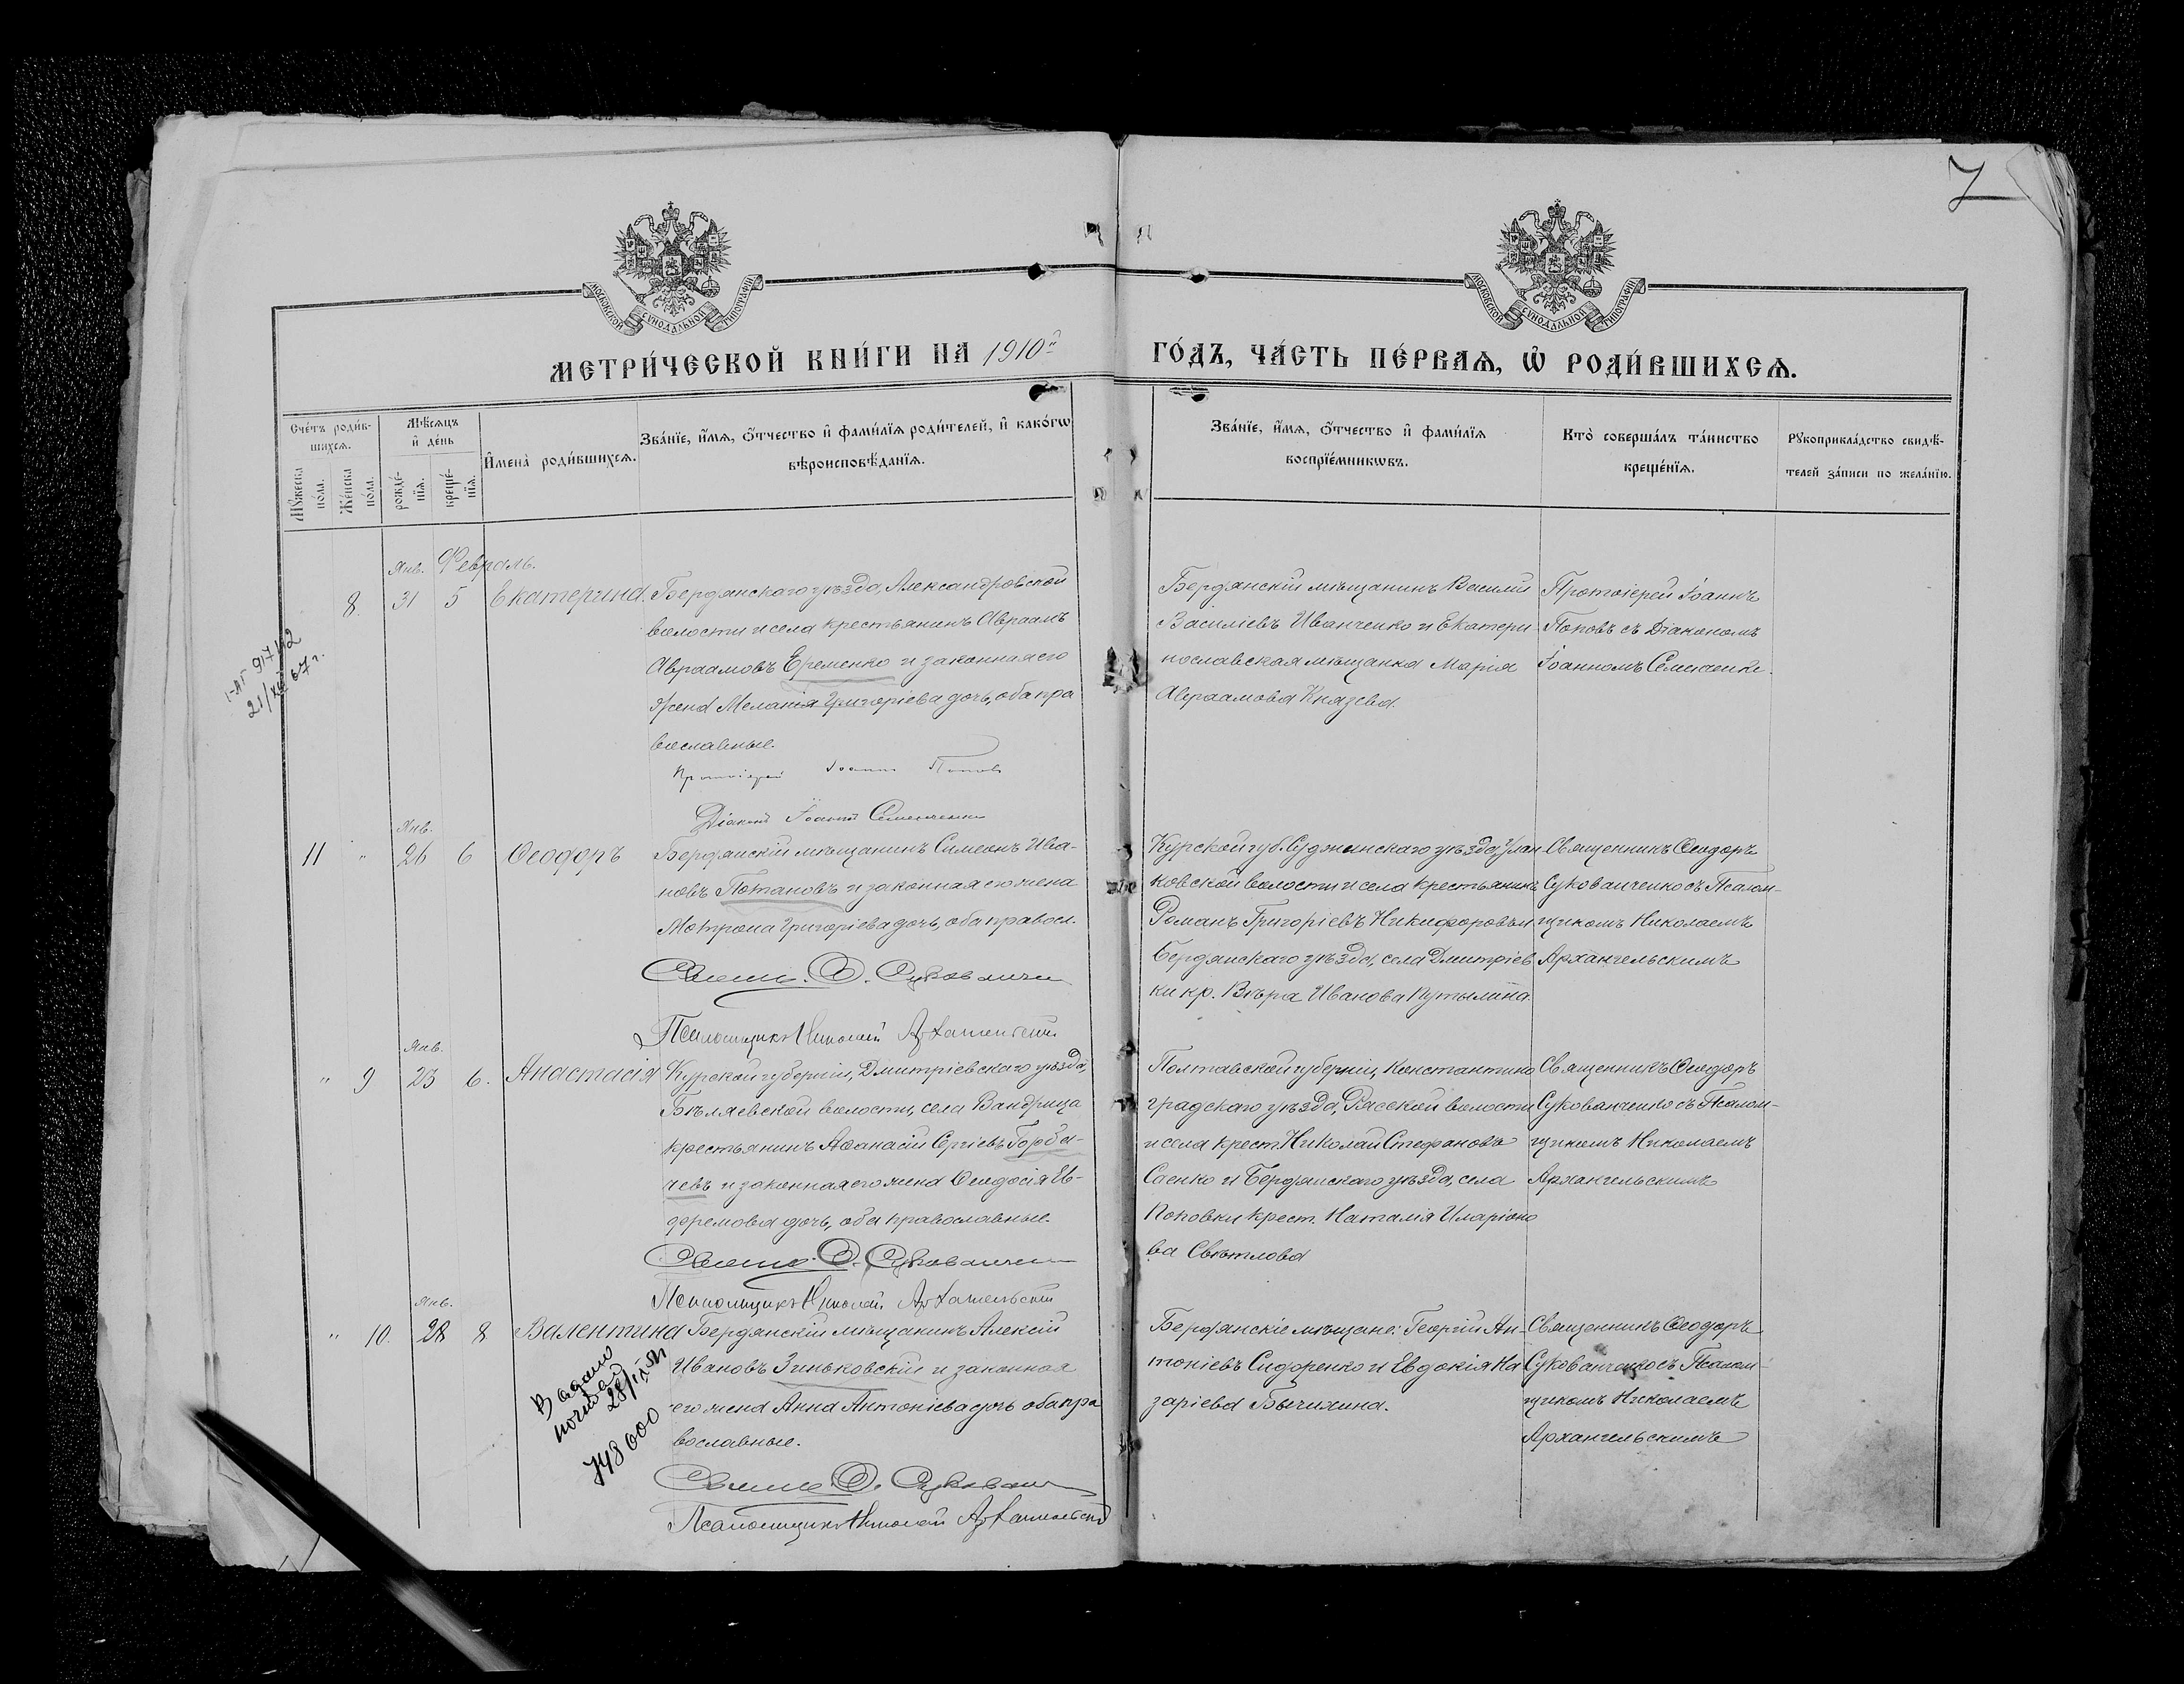 7
МОСКОВСКОЙ СУНОДАЛЬНОЙ ТИПОГРАФІИ
МОСКОВСКОЙ СУНОДАЛЬНОЙ ТИПОГРАФІИ
МЕТРИ́ЧЕСКОЙ КНИ́ГИ НА 1910й
ГО́ДЪ, ЧА́СТЬ ПЕ́РВАѦ, Ѡ҆ РОДИ́ВШИХСѦ.
Сче́тъ роди́в-
шихсѧ.
Мꙋ́жеска по́ла.
Же́нска по́ла.
Мѣ́сѧцъ
и҆ де́нь
рожде́-
нїѧ.
креще́-
нїѧ.
И҆мена̀ роди́вшихсѧ.
Зва́нїе, и҆́мѧ, ѻ҆́тчество и҆ фами́лїѧ роди́телей, и҆ како́гѡ
вѣроисповѣ́данїѧ.
Зва́нїе, и҆́мѧ, ѻ҆́тчество и҆ фами́лїѧ
воспрїе́мникѡвъ.
Кто̀ соверша́лъ та́инство
креще́нїѧ.
Рꙋкоприкла́дство свидѣ́-
телей за́писи по жела́нїю.
Янв. Февраль.
8. 31 5 Екатерина.
Бердянскаго уѣзда, Александровской
волости и села крестьянинъ Авраамъ
Авраамовъ Еременко и законная его
жена Меланія Григоріева дочь, оба пра
вославные.
Протоіерей Іоаннъ Поповъ
Діаконъ Іоаннъ Семенченко
Бердянскій мѣщанинъ Василій
Василіевъ Иванченко и Екатери
нославская мѣщанка Марія
Авраамова Князева.
Протоіерей Іоаннъ
Поповъ съ Діакономъ
Іоанномъ Семенченко.
21/XII 67 г.
Янв.
11 " 26 6 Ѳеодоръ
Бердянскій мѣщанинъ Симеонъ Ива-
новъ Потаповъ и законная его жена
Мотрона Григоріева дочь, оба правосл.
Свящ. Ѳ. Сукованченко
Псаломщикъ Николай Архангельскій
Курской губ. Суджанскаго уѣзда, Улан
ковской волости и села крестьянинъ
Романъ Григоріевъ Никифоровъ и
Бердянскаго уѣзда, села Дмитріев
ки кр. Вѣра Иванова Путылина.
Священникъ Ѳеодоръ
Сукованченко съ Псалом-
щикомъ Николаемъ
Архангельскимъ
Янв.
" 9 23 6. Анастасія
Курской губерніи, Дмитріевскаго уѣзда,
Бѣляевской волости, села Вандрица
крестьянинъ Аѳанасій Сергіевъ Горба-
чевъ и законная его жена Ѳеодосія Ев-
доремова дочь, оба православные.
Свящ. Ѳ. Сукованченко
Псаломщикъ Николай Архангельскій
Полтавской губерніи, Константино
градскаго уѣзда, Рясской волости
и села крест. Николай Стефановъ
Саенко и Бердянскаго уѣзда, села
Поповки крест. Наталія Иларіоно
ва Свѣтлова
Священникъ Ѳеодоръ
Сукованченко съ Псалом-
щикомъ Николаемъ
Архангельскимъ
Янв.
" 10. 28 8 Валентина
Бердянскій мѣщанинъ Алексій
Ивановъ Зиньковскій и законная
его жена Анна Антоніева дочь оба пра
вославные.
Свящ. Ѳ. Сукованченко
Псаломщикъ Николай Архангельскій
748000
Бердянскіе мѣщане: Георгій Ан-
тоніевъ Сидоренко и Евдокія На
заріева Бычихина.
Священникъ Ѳеодоръ
Сукованченко съ Псалом-
щикомъ Николаемъ
Архангельскимъ